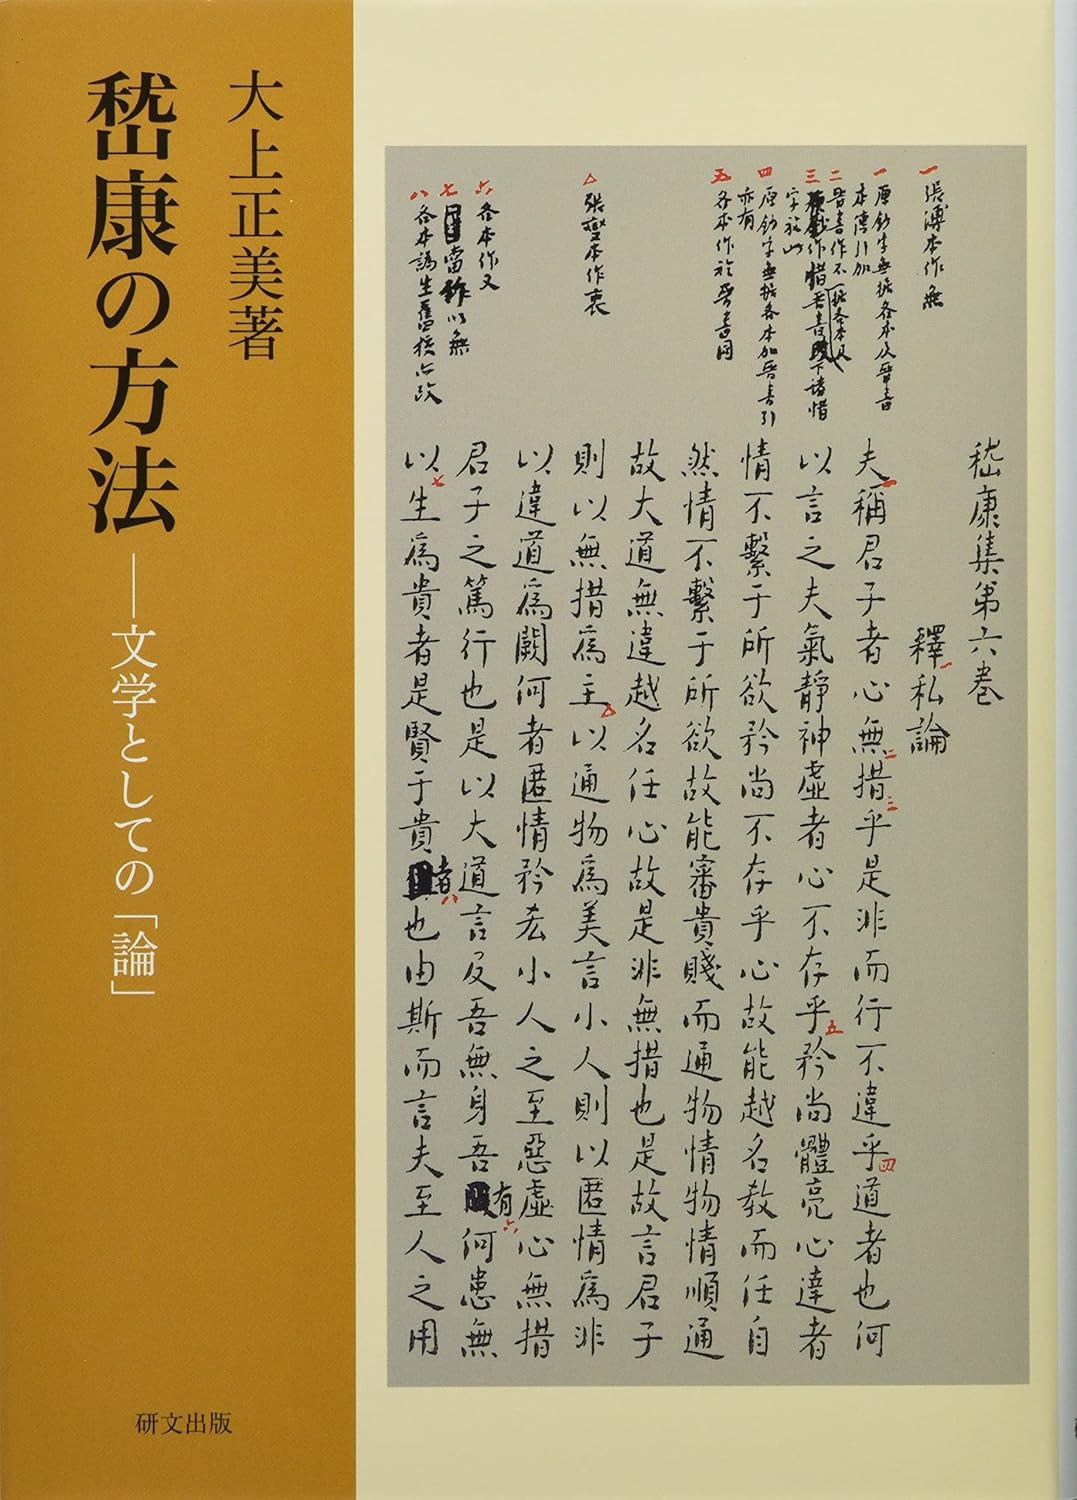 大上正美著
嵇康の方法
――文学としての「論」
研文出版
一 張溥本作無
一 原鈔字無據各本及晋書
本傳引加
二 晋書作不
四 原鈔字無據各本加晋書引
亦有
五 各本作於晋書同
△ 張燮本作衷
六 各本作又
七 當作以無
八 各本譌生舊校亦改
嵇康集第六卷
釋一私論
夫一稱君子者心無二措三乎是非而行不違乎四道者也何
以言之夫氣靜神虛者心不存乎五矜尚體亮心達者
情不繫于所欲矜尚不存乎心故能越名教而任自
然情不繫于所欲故能審貴賤而通物情物情順通
故大道無違越名任心故是非無措也是故言君子
則以無措為主△以通物為美言小人則以匿情為非
以違道為闕何者匿情矜吝小人之至惡虛心無措
君子之篤行也是以大道言及吾無身吾有六何患無
以七生為貴者是賢于貴者八也由斯而言夫至人之用